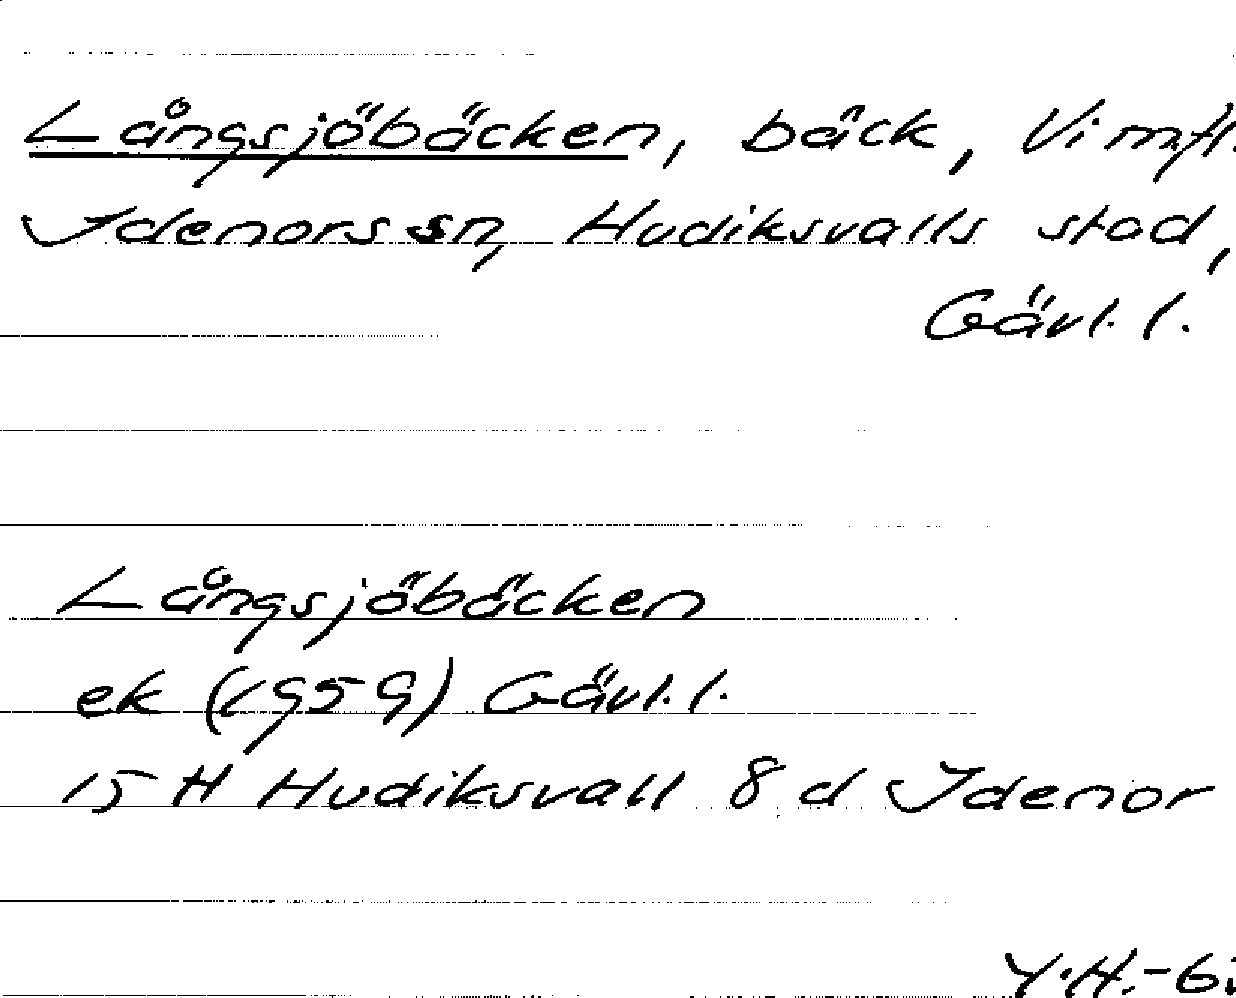 Långsjöbäcken, bäck, Vi m.fl.
Idenors sn, Hudiksvalls stad,
Gävl. l.
Långsjöbäcken
ek (1959) Gävl. l.
15 H Hudiksvall 8 d Idenor
Y.H.-6